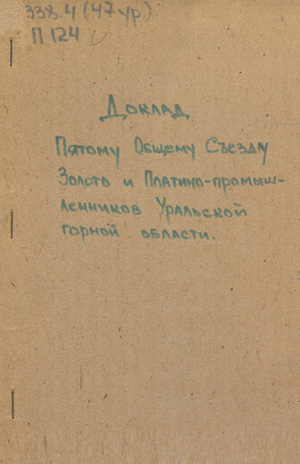 338.4(47ур)
П 124
Доклад
Пятому Общему Съезду
Золото и Платино-промыш-
ленников Уральской
горной области.